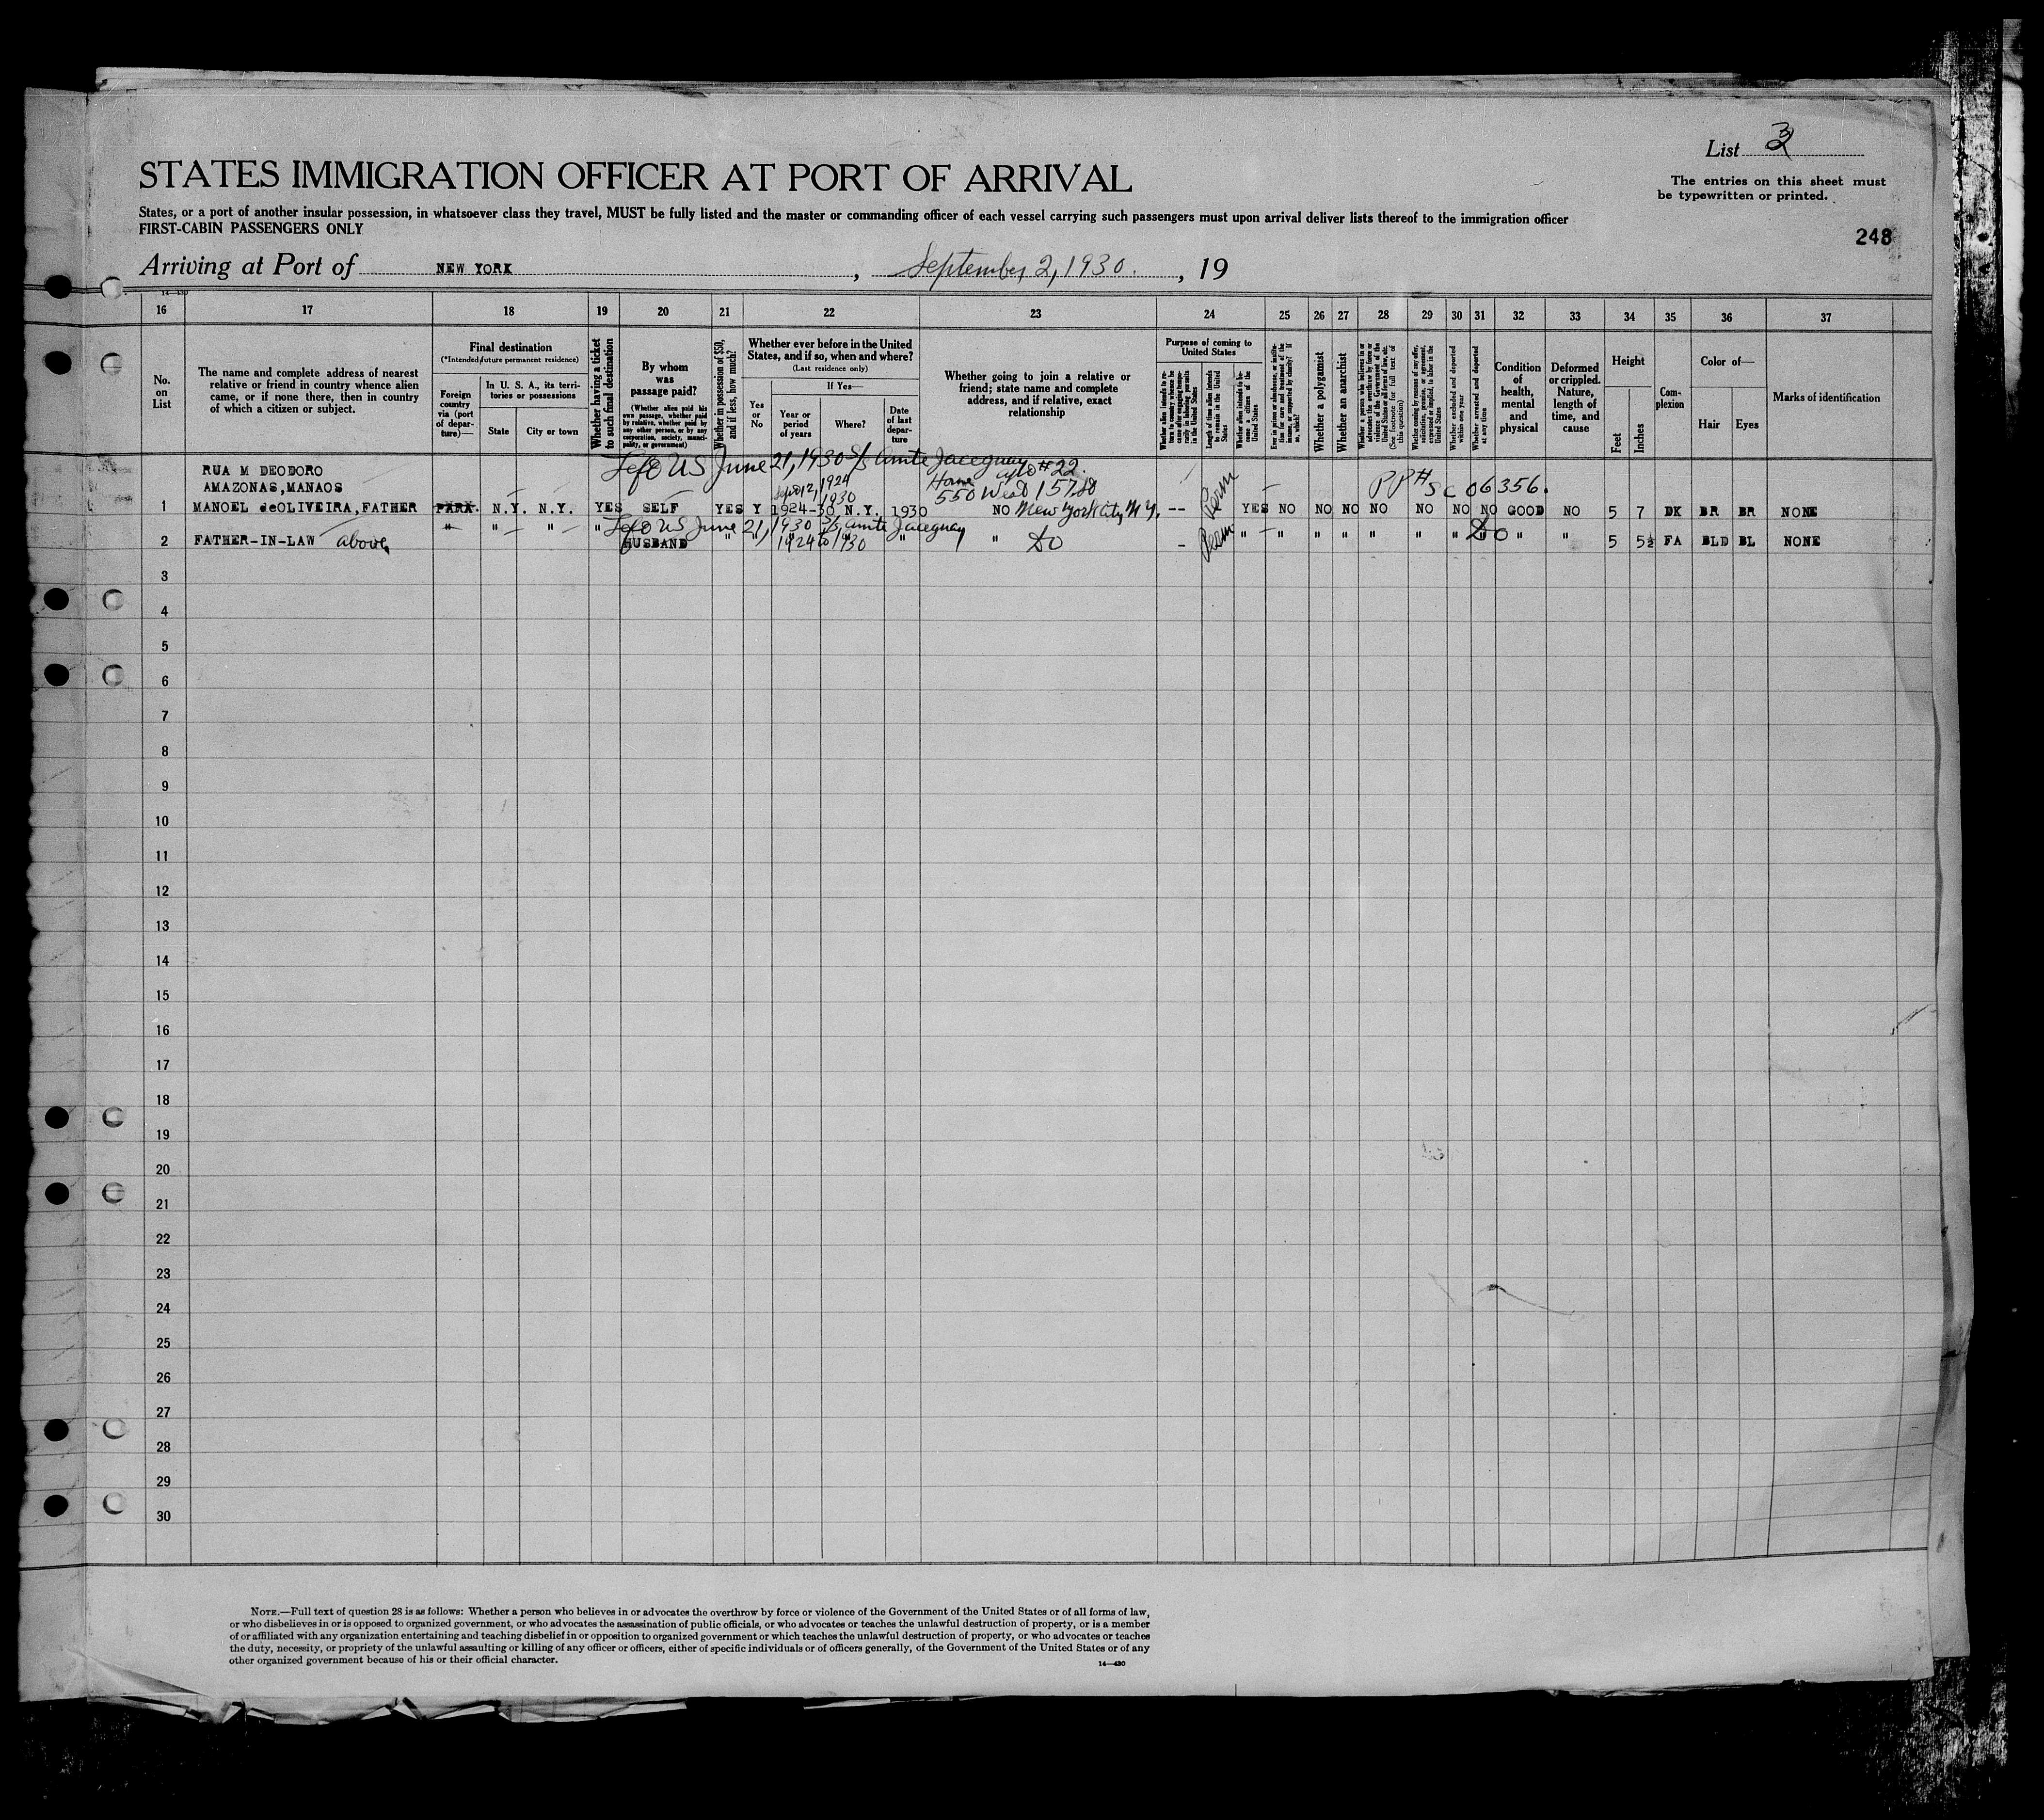 List 3
STATES IMMIGRATION OFFICER AT PORT OF ARRIVAL
The entries on this sheet must
be typewritten or printed.
States, or a port of another insular possession, in whatsoever class they travel, MUST be fully listed and the master or commanding officer of each vessel carrying such passengers must upon arrival deliver lists thereof to the immigration officer
FIRST-CABIN PASSENGERS ONLY
248
Arriving at Port of NEW YORK, September 2, 1930., 19
14—430
16 17 18 19 20 21 22 23 24 25 26 27 28 29 30 31 32 33 34 35 36 37
No. on List
The name and complete address of nearest relative or friend in country whence alien came, or if none there, then in country of which a citizen or subject.
Final destination
(*Intended future permanent residence)
Foreign country via (port of departure)—
In U. S. A., its territories or possessions
State
City or town
Whether having a ticket to such final destination
By whom was passage paid?
(Whether alien paid his own passage, whether paid by relative, whether paid by any other person, or by any corporation, society, municipality, or government)
Whether in possession of $50, and if less, how much?
Whether ever before in the United States, and if so, when and where?
(Last residence only)
Yes or No
If Yes—
Year or period of years
Where?
Date of last departure
Whether going to join a relative or friend; state name and complete address, and if relative, exact relationship
Purpose of coming to United States
Whether alien intends to return to country whence he came after engaging temporarily in laboring pursuits in the United States
Length of time alien intends to remain in the United States
Whether alien intends to become a citizen of the United States
Ever in prison or almshouse, or institution for care and treatment of the insane, or supported by charity? If so, which?
Whether a polygamist
Whether an anarchist
Whether a person who believes in or advocates the overthrow by force or violence of the Government of the United States or all forms of law, etc. (See footnote for full text of this question)
Whether coming by reason of any offer, solicitation, promise, or agreement, expressed or implied, to labor in the United States
Whether excluded and deported within one year
Whether arrested and deported at any time
Condition of health, mental and physical
Deformed or crippled. Nature, length of time, and cause
Height
Feet
Inches
Complexion
Color of—
Hair
Eyes
Marks of identification
Left US June 21, 1930 S/s Amte Jaceguay
RUA M DEODORO
AMAZONAS,MANAOS
Sept 12, 1924
1930
Home apto #22.
550 West 157 St
PP# SC 06356.
1 MANOEL deOLIVEIRA,FATHER PARA. N.Y. N.Y. YES SELF YES Y 1924-30 N.Y. 1930 NO New York City N Y. -- Perm YES NO NO NO NO NO NO NO GOOD NO 5 7 DK BR BR NONE
Left US June 21, 1930 S/s Amte Jaceguay
2 FATHER-IN-LAW above " " " " HUSBAND " " 1924 to 1930 " " Do - Perm " " " " " " " Do " " 5 5½ FA BLD BL NONE
3
4
5
6
7
8
9
10
11
12
13
14
15
16
17
18
19
20
21
22
23
24
25
26
27
28
29
30
NOTE.—Full text of question 28 is as follows: Whether a person who believes in or advocates the overthrow by force or violence of the Government of the United States or of all forms of law,
or who disbelieves in or is opposed to organized government, or who advocates the assassination of public officials, or who advocates or teaches the unlawful destruction of property, or is a member
of or affiliated with any organization entertaining and teaching disbelief in or opposition to organized government or which teaches the unlawful destruction of property, or who advocates or teaches
the duty, necessity, or propriety of the unlawful assaulting or killing of any officer or officers, either of specific individuals or of officers generally, of the Government of the United States or of any
other organized government because of his or their official character.
14—430